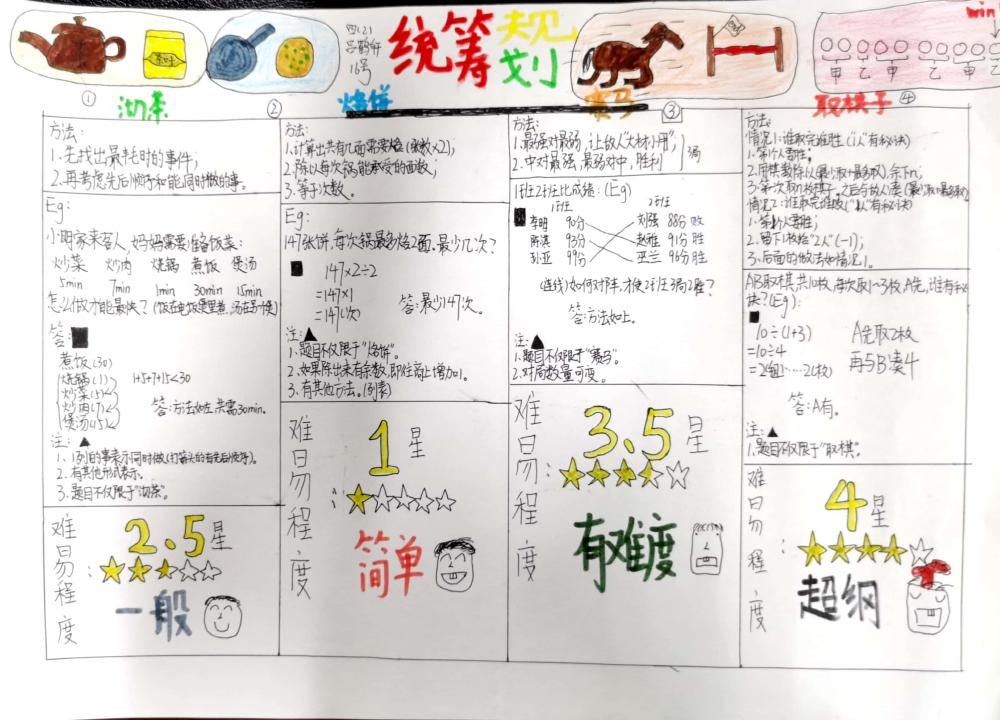 四(2)
16号
统筹规划
win
甲 乙 甲 乙 甲 乙
①
沏茶
②
烙饼
赛马
③
取棋子
④
方法：
1.先找出最耗时的事件；
2.再考虑先后顺序和能同时做的事。
Eg：
小明家来客人，妈妈需要准备饭菜：
炒菜 炒肉 烧锅 煮饭 煲汤
5min 7min 1min 30min 15min
怎么做才能最快？(饭在电饭煲里煮，汤在另一煲)
答：
煮饭(30)
烧锅(1)
炒菜(5)
炒肉(7)
煲汤(15)
1+5+7+15<30
答：方法如左，共需30min。
注：▲
1.1列的事表示同时做(打箭头的有先后顺序)。
2.有其他形式表示。
3.题目不仅限于“沏茶”。
难易程度：
2.5星
一般
方法：
1.计算出共有几面需要烙(张数×2)；
2.除以每次锅能承受的面数；
3.等于次数。
Eg：
147张饼，每次锅最多烙2面，最少几次？
147×2÷2
=147×1
=147(次)
答：最少147次。
注：▲
1.题目不仅限于“烙饼”。
2.如果除出来有余数，即往商上增加1。
3.有其他方法。(列表)
难易程度：
1星
简单
方法：
1.最强对最弱，让敌人“大材小用”；
2.中对最强，最弱对中，胜利
3局
1班2班比成绩：(Eg)
1班 2班
李明 90分 刘强 88分 败
陈淇 93分 赵雅 91分 胜
孙亚 99分 巫兰 96分 胜
(连线)如何对阵，才使2班3局2胜？
答：方法如上。
注：▲
1.题目不仅限于“赛马”。
2.对局数量可变。
难易程度：
3.5星
有难度
方法：
情况1：谁取完谁胜(“1人”有秘诀)
1.第1个人要胜；
2.用棋数除以(最少取+最多取)，余下n；
3.第一次取n枚棋子，之后与敌人凑(最少取+最多取)
情况2：谁取完谁败(“1人”有秘诀)
1.第1个人要胜；
2.留下1枚给“2人”(-1)；
3.后面的做法如情况1。
AB取棋，共10枚，每次取1~3枚，A先，谁有秘
诀？(Eg)：
10÷(1+3)
=10÷4
=2(组)……2(枚)
A先取2枚
再与B凑4
答：A有。
注：▲
1.题目不仅限于“取棋”。
难易程度：
4星
超纲